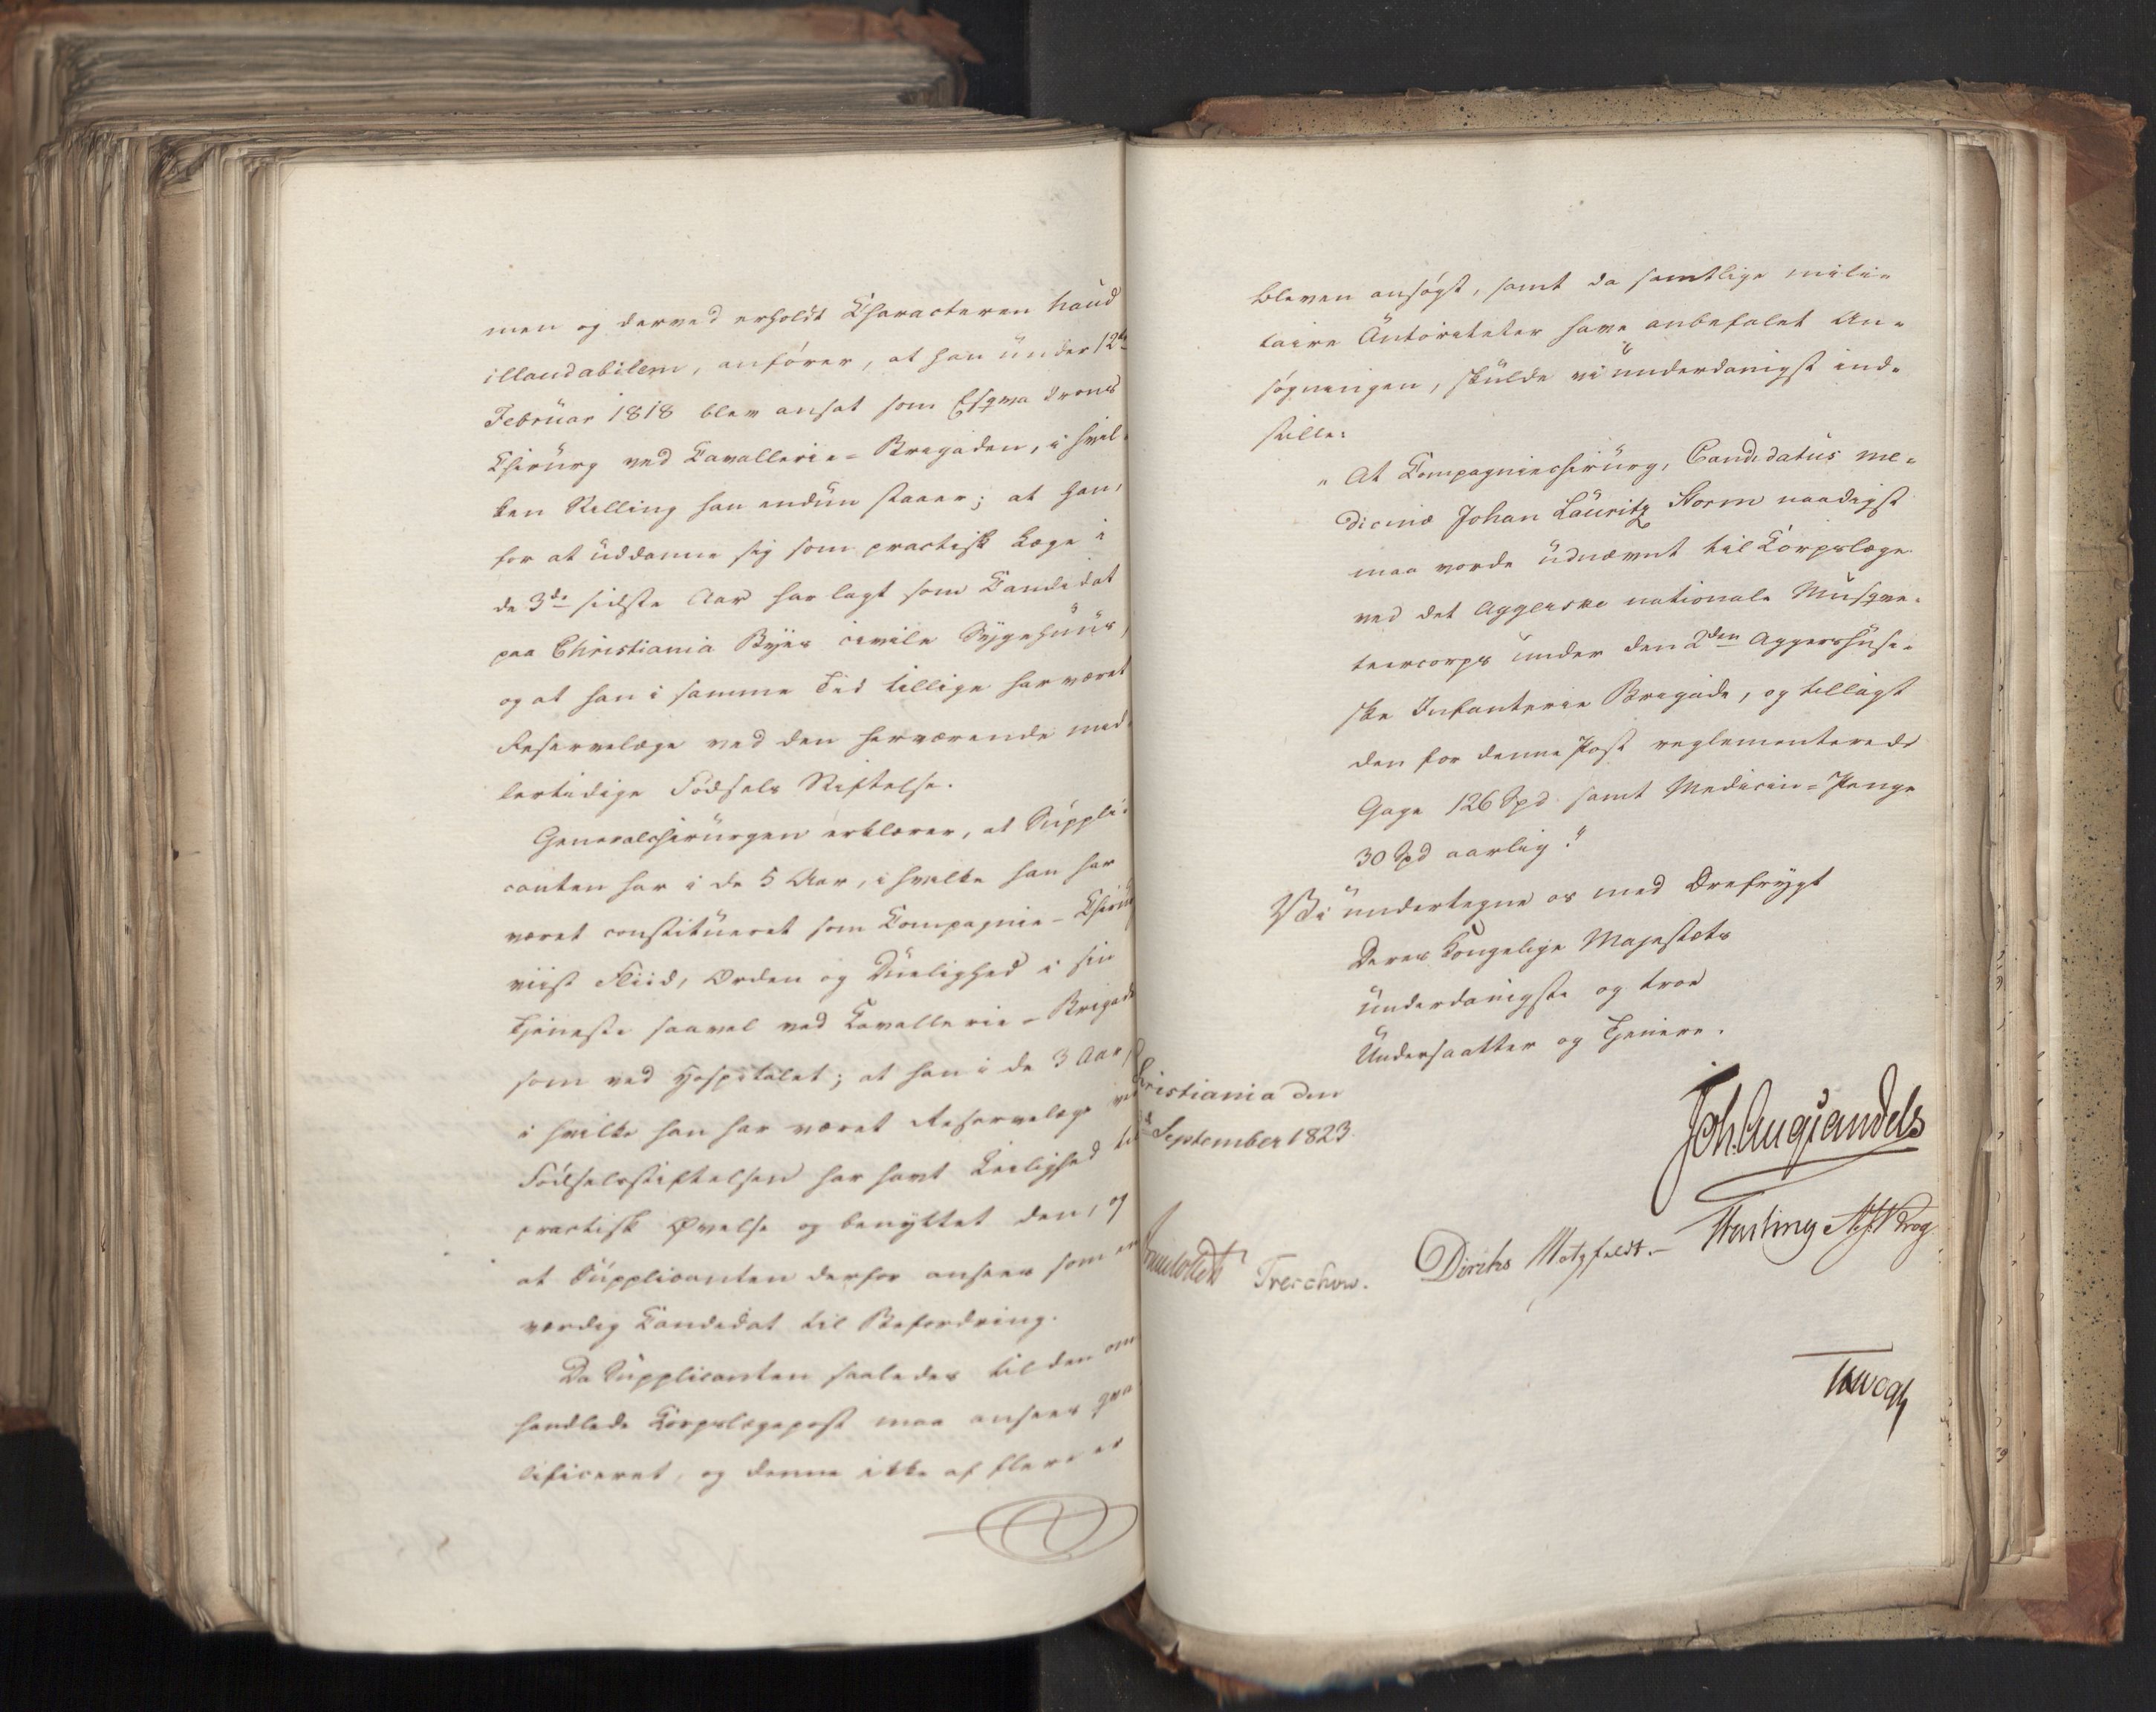 men og derved erholdt Characteren haud
illaudabilem, anfører, at han under 12te
Februar 1818 blev ansat som Esqva drons
Chirurg ved Cavallerie-Brigaden, i hvil-
ken Stilling han endnu staaer; at han,
for at uddanne sig som practisk Læge i
de 3de sidste Aar har lagt som Candidat
paa Christiania Byes civile Sygehuus,
og at han i samme Tid tillige har været
Reservelæge ved den herværende mid-
lertidige Fødsels Stiftelse.
Generalchirurgen erklærer, at Suppli-
canten har i de 5 Aar, i hvilke han har
været constitueret som Compagnie-Chirur
viist Fliid, Orden og Duelighed i sin
Tjeneste saavel ved Cavallerie-Brigade
som ved Hospitalet; at han i de 3 Aar,
i hvilke han har været Reservelæge ved
Fødselsstiftelsen har havt Leilighed til
practisk Øvelse og benyttet den, og
at Supplicanten derfor ansees som en
værdig Candidat til Befordring.
Da Supplicanten saaledes til den om
handlede Corpslægepost maa ansees qva
lificeret, og denne ikke af flere er
bleven ansøgt, samt da samtlige mili-
taire Autoriteter have anbefalet An-
søgningen, skulde vi underdanigst ind-
stille:
"At Compagniechirurg, Candidatus me-
dicinæ Johan Lauritz Storm naadigst
maa vorde udnævnt til Corpslæge
ved det Aggerske nationale Musqve-
teercorps under den 2den Aggershusi-
ske Infanterie Brigade, og tillagt
den for denne Post reglementerede
Gage 126 Spd samt Medicin-Penge
30 Spd aarlig."
Vi undertegne os med Ærefrygt
Deres Kongelige Majestæts
underdanigste og troe
Undersaatter og Tjenere.
Christiania den
September 1823
Joh. Aug. Sandels
Sommerfeldt Treschow. Diriks Motzfeldt.- Fasting
Krog